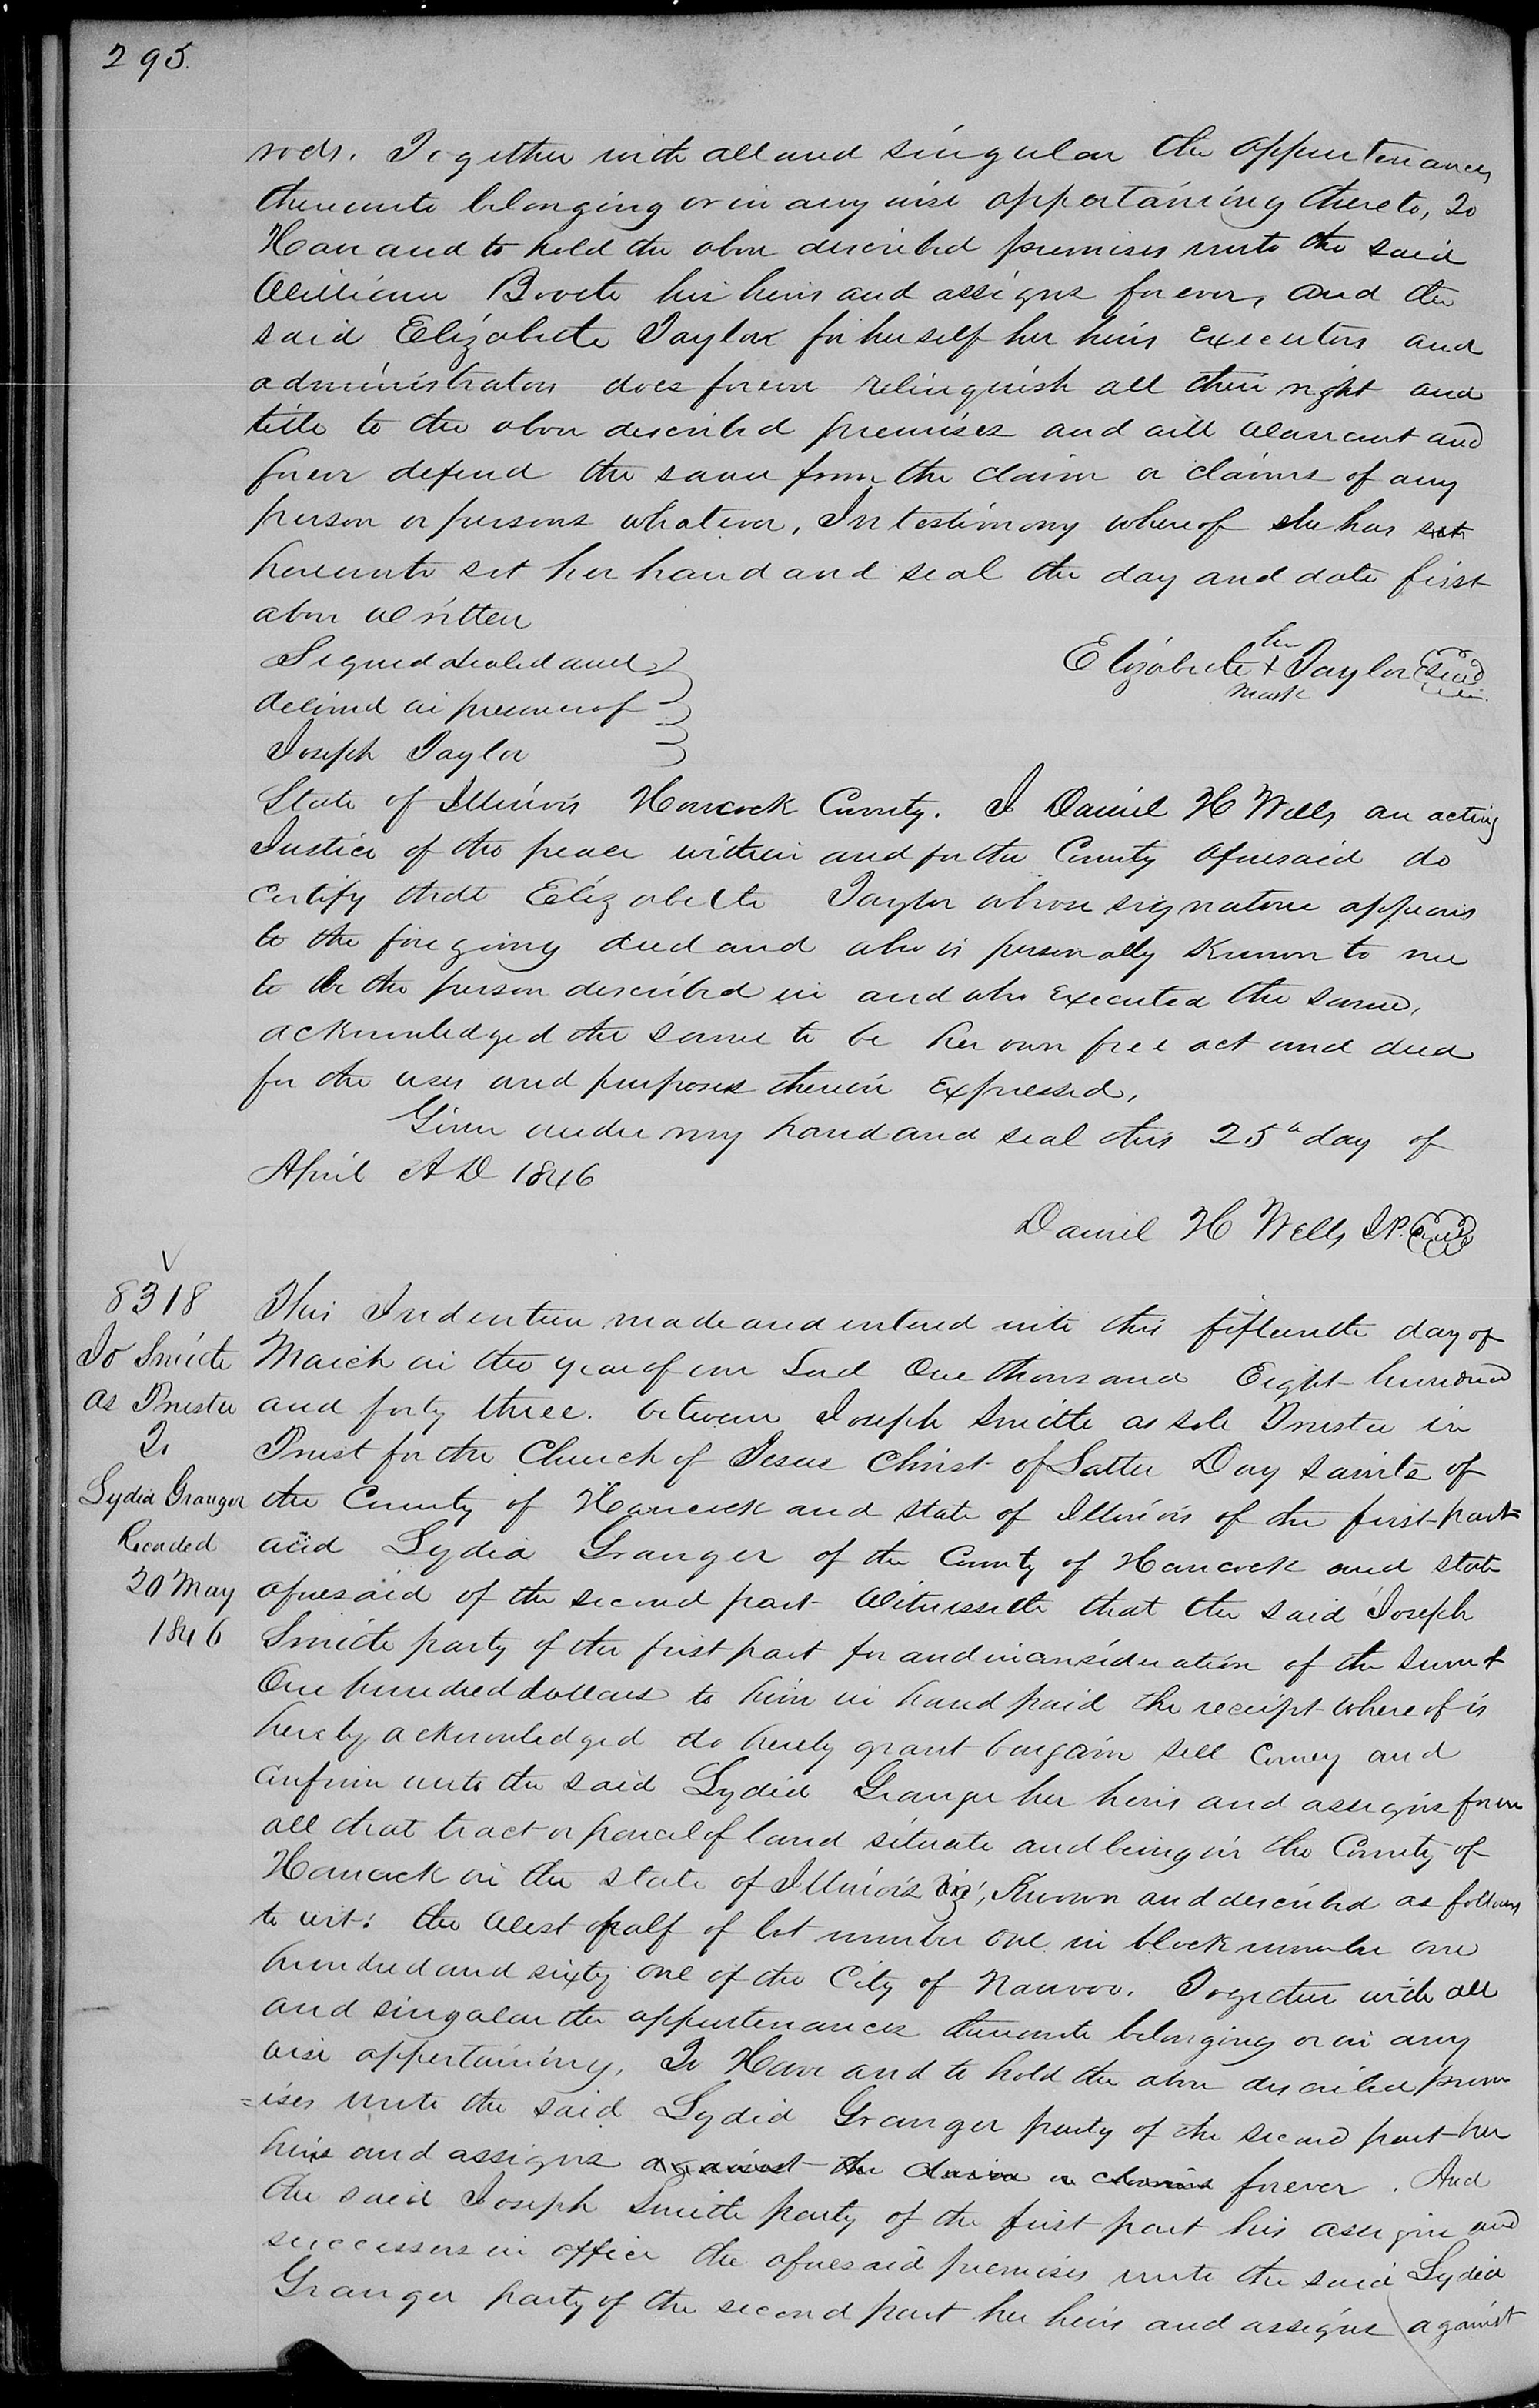 295.
rods. Together with all and singular the appurtenances
thereunto belonging or in any wise appertaining thereto, To
Have and to hold the above described premises unto the said
William Boote his heirs and assigns forever, and the
said Elizabeth Taylor for herself her heirs executors and
administrators does forever relinquish all their right and
title to the above described premises and will Warrant and
forever defend the same from the claim or claims of any
person or persons whatever, In testimony whereof she has set
hereunto set her hand and seal the day and date first
above Written
Signed sealed and
delived in presence of
Joseph Taylor
her
Elizabeth + Taylor Seal
mark
State of Illinois Hancock County. I Daniel H Wells an acting
Justice of the peace within and for the County aforesaid do
certify that Elizabeth Taylor whose signature appears
to the foregoing deed and who is personally Known to me
to be the person described in and who Executed the same,
acknowledged the same to be her own free act and deed
for the uses and purposes therein Expressed,
Given under my hand and seal this 25th day of
April AD 1846
Daniel H Wells J.P. Seal
8318
Jo Smith
as Trustee
To
Lydia Granger
Recorded
20 May
1846
This Indenture made and entered into this fifteenth day of
March in the year of our Lord One thousand Eight hundred
and forty three. between Joseph Smith as sole Trustee in
Trust for the Church of Jesus Christ of Latter Day Saints of
the County of Hancock and state of Illinois of the first part
and Lydia Granger of the County of Hancock and state
aforesaid of the second part Witnesseth that the said Joseph
Smith party of the first part for and in consideration of the sum of
One hundred dollars to him in hand paid the receipt whereof is
hereby acknowledged do hereby grant bargain sell Convey and
confirm unto the said Lydia Granger her heirs and assigns forever
all that tract or parcel of land situate and being in the County of
Hancock in the state of Illinois viz; Known and described as follows
to wit: the West half of lot number one in block number one
hundred and sixty one of the City of Nauvoo. Together with all
and singular the appurtenances thereunto belonging or in any
wise appertaining, To Have and to hold the above described prem
=ises unto the said Lydia Granger party of the second part her
heirs and assigns against the claim or claims forever. And
the said Joseph Smith party of the first part his assigns and
successors in office the aforesaid premises unto the said Lydia
Granger party of the second part her heirs and assigns against